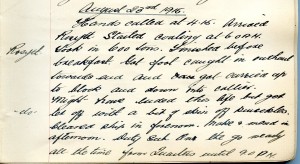 August 22nd 1915.
Hands called at 4.15. Arrived
Rosyth Rosyth Started coaling at 6 a.m.
Took in 600 tons. Finished before
breakfast. Got foul caught in outhaul
towards end and got carried up
to block and down into collier.
Might have ended this life but got
let off with a bit of skin off knuckles.
Cleaned ship in forenoon. Make & mend in
-do- afternoon. Duty Sub. On the go nearly
all the time from Quarters until 9.0 p.m.